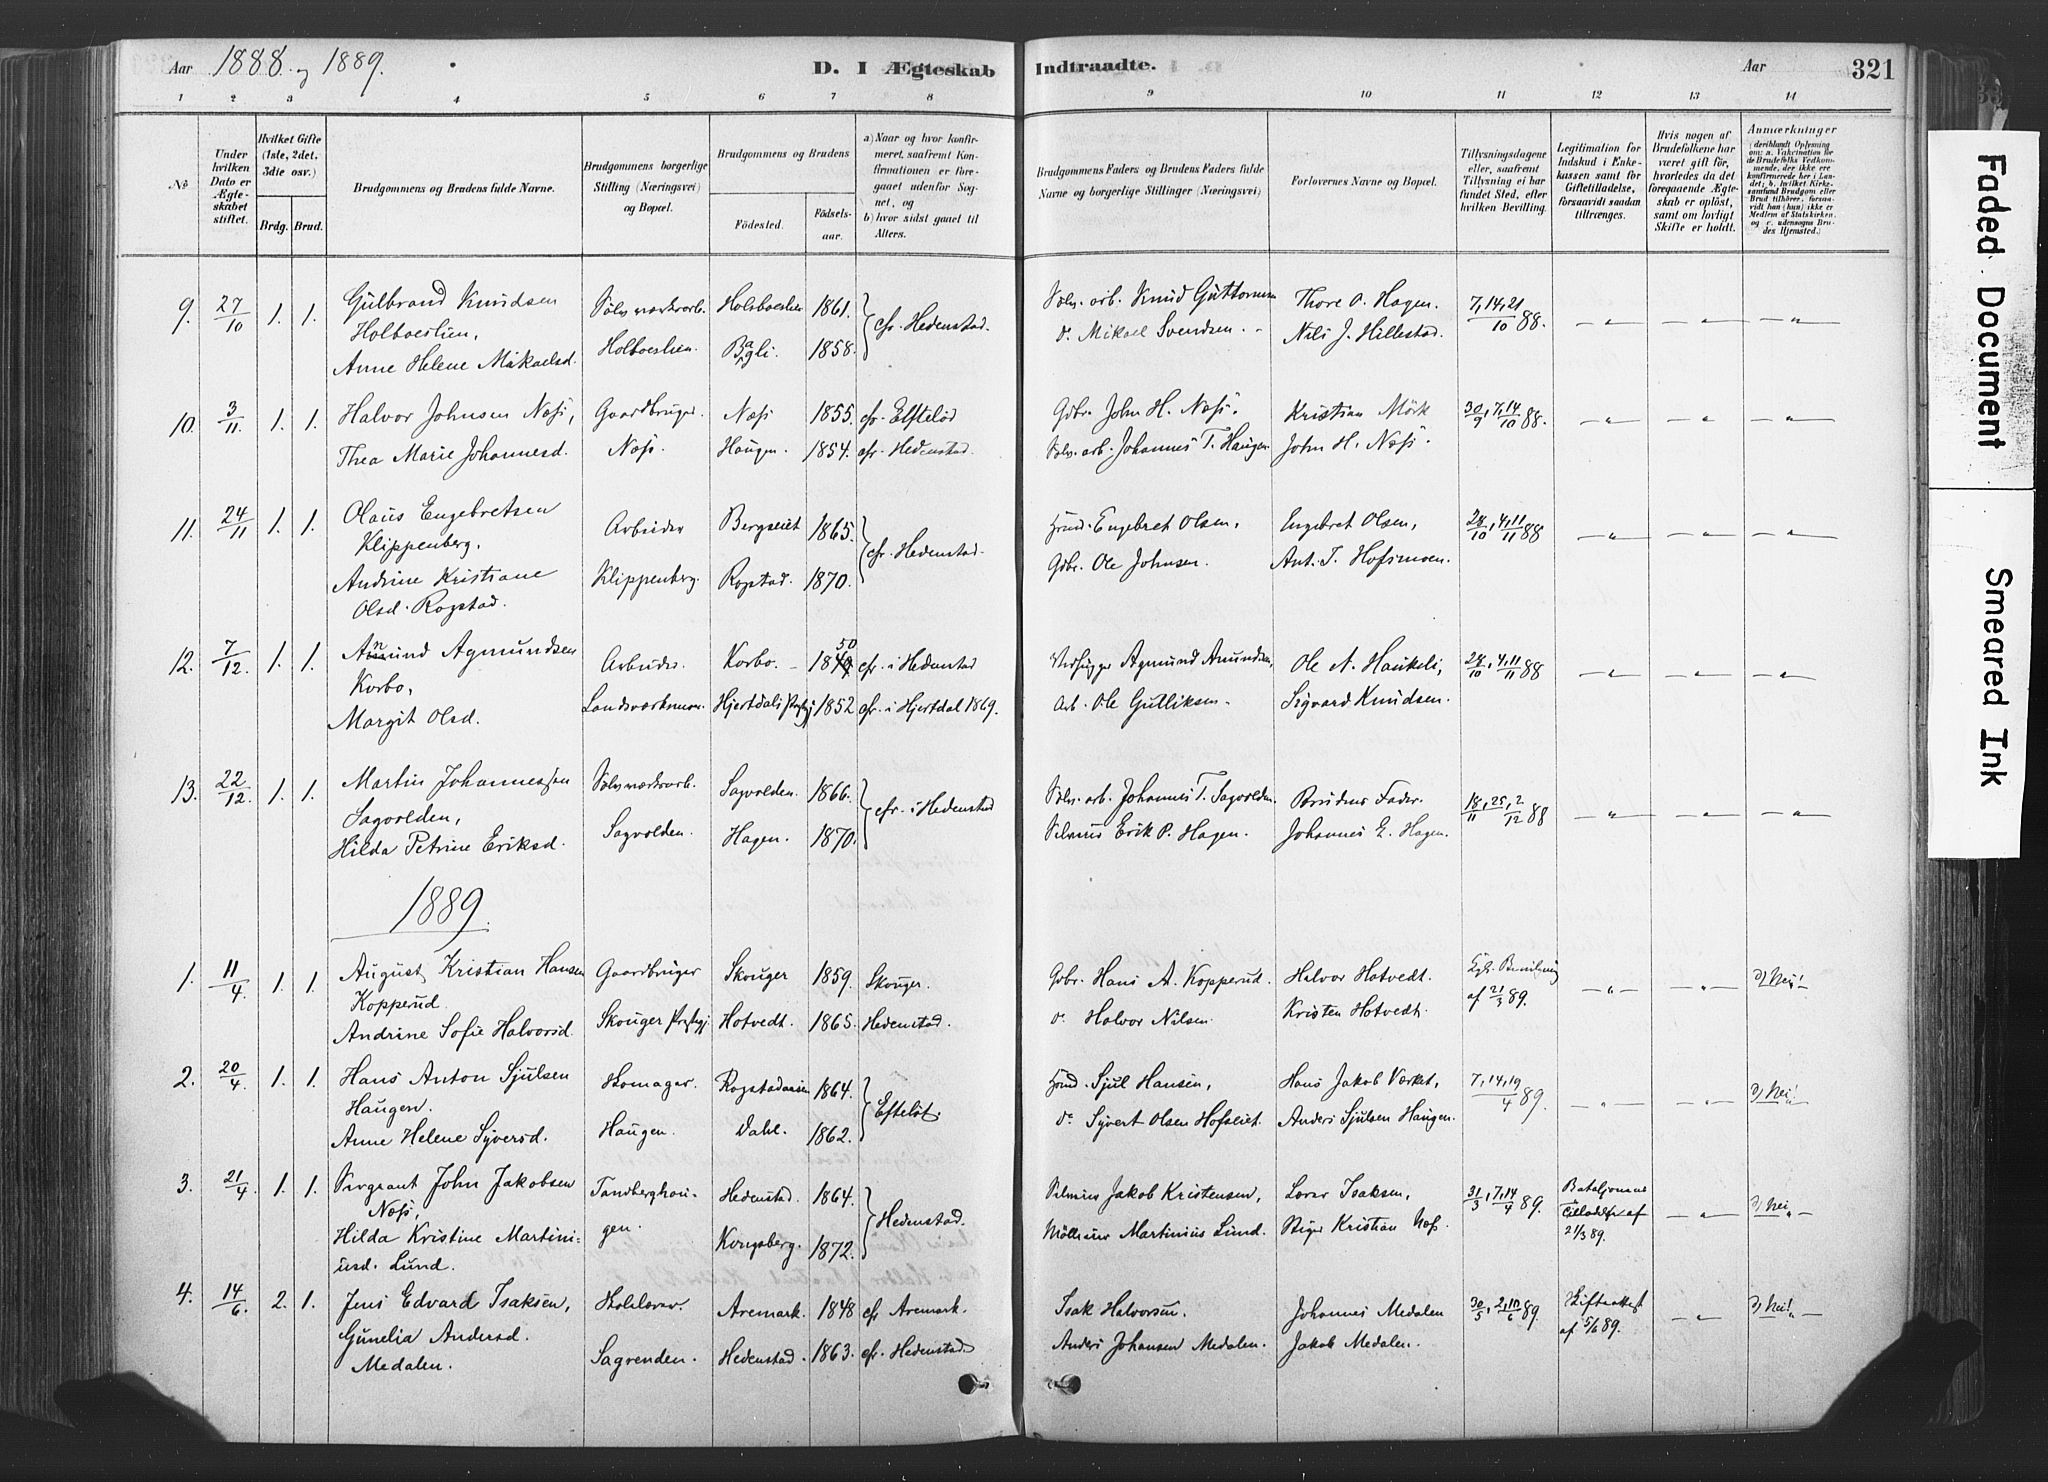 Aar 1888 og 1889.
D. I Ægteskab Indtraadte.
Aar 321
1 2 3 4 5 6 7 8 9 10 11 12 13 14
No
Under hvilken Dato er Ægteskabet stiftet.
Hvilket Gifte (1ste, 2det, 3die osv.)
Brdg. Brud.
Brudgommens og Brudens fulde Navne.
Brudgommens borgerlige Stilling (Næringsvei) og Bopæl.
Brudgommens og Brudens
Fødested. Fødselsaar.
a) Naar og hvor konfirmeret, saafremt Konfirmationen er foregaaet udenfor Sognet, og
b) hvor sidst gaaet til Alters.
Brudgommens Faders og Brudens Faders fulde Navne og borgerlige Stillinger (Næringsvei)
Forlovernes Navne og Bopæl.
Tillysningsdagene eller, saafremt Tillysning ei har fundet Sted, efter hvilken Bevilling.
Legitimation for Indskud i Enkekassen samt for Giftetilladelse, forsaavidt saadan tiltrænges.
Hvis nogen af Brudefolkene har været gift før, hvorledes da det foregaaende Ægteskab er opløst, samt om lovligt Skifte er holdt.
Anmærkninger (deriblandt Oplysning om: a. Vakcination for de Brudefolks Vedkommende, der ikke ere konfirmerede her i Landet; b. hvilket Kirkesamfund Brudgom eller Brud tilhører, forsaavidt han (hun) ikke er Medlem af Statskirken, og c. udensogns Brudes Hjemsted.)
9. 27/10 1. 1. Gulbrand Knudsen Holboeslien, Sølvværksarb. Holboeslien 1861. cfr. Hedenstad. Sølv. arb. Knud Guttormsen Thore O. Hagen. 7, 14, 21/10 88.
Anne Helene Mikaelsd. Holboeslien. Bagli. 1858. do. Mikael Svendsen. Nils J. Hillestad.
10. 3/11 1. 1. Halvor Johnsen Næss, Gaardbruger. Næss 1855. cfr. Efteløt Gdbr. John H. Næss. Kristian Mörk 30/9, 7, 14/10 88.
Thea Marie Johannesd. Næss. Haugen. 1854. cfr. Hedenstad. Sølv. arb. Johannes T. Haugen John H. Næss.
11. 24/11 1. 1. Olaus Engebretsen Klippenberg. Arbeider Bergseiet 1865. cfr. Hedenstad. Hmd. Engebret Olsen, Engebret Olsen, 28/10, 4, 11/11 88
Andrine Kristiane Olsd. Rogstad. Klippenberg. Rogstad. 1870. Gdbr. Ole Johnsen. Ant. T. Hofsmoen.
12. 7/12 1. 1. Anund Agmundsen Korbo, Arbeider. Korbo. 1850 cfr. i Hedenstad Agmund Anundsen, Ole A. Haukeli, 28/10, 4, 11/11 88
Margit Olsd. Landsværksmoen. Hjertdals Prstgj. 1852 cfr. i Hjertdal 1869. Arb. Ole Gulliksen. Sigvard Knudsen.
13. 22/12. 1. 1. Martin Johannessen Sagvolden, Sølvværksarb. Sagvolden. 1866. cfr. i Hedenstad Sølv. arb. Johannes T. Sagvolden. Brudens Fader. 18/11, 25, 2/12 88
Hilda Petrine Eriksd. Sagvolden. Hagen. 1870. Erik P. Hagen. Johannes E. Hagen.
1889.
1. 11/4. 1. 1. August Kristian Hansen Kopperud. Gaardbruger Skouger 1859. Skouger. Gdbr. Hans A. Kopperud. Halvor Hotvedt. Kgl. Bevilgning af 21/3 89. Nei!
Andrine Sofie Halvorsd. Skouger Prstgj. Hotvedt. 1865. Hedenstad. do. Halvor Nilsen. Kristen Hotvedt.
2. 20/4. 1. 1. Hans Anton Sjulsen Haugen. Skomager. Rogstadaasen 1864. Efteløt. Hmd. Sjul Hansen, Hans Jakob Værket, 7, 14, 19/4 89. Nei!
Anne Helene Syversd. Haugen. Dahl. 1862. do. Syvert Olsen Hofseiet. Anders Sjulsen Haugen.
3. 21/4. 1. 1. Sergeant John Jakobsen Næss, Tandberghougen. Hedenstad. 1864. Hedenstad. Jakob Kristensen, Lorar Isaksen, 31/3, 7, 14/4 89. Bataljonens Tilladelse af 21/3 89. Nei
Hilda Kristine Martiniusd. Lund. Kongsberg. 1872. Martinius Lund. Stiger Kristian Næss.
4. 14/6. 2. 1. Jens Edvard Isaksen, Aremark. 1848 cfr. Aremark. Isak Halvorsen. Johannes Medalen 30/5, 2, 10/6 89. Skifteattest af 5/6 89. Nei!
Gunelia Andersd. Medalen. Sagrenden. Hedenstad. 1863. cfr. Hedenstad. Anders Johansen Medalen. Jakob Medalen.
Faded Document
Smeared Ink